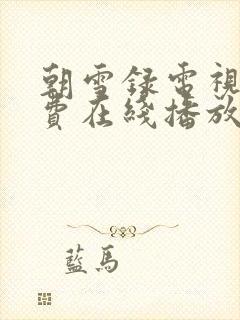 朝雪録電視
費在綫播放
藍馬